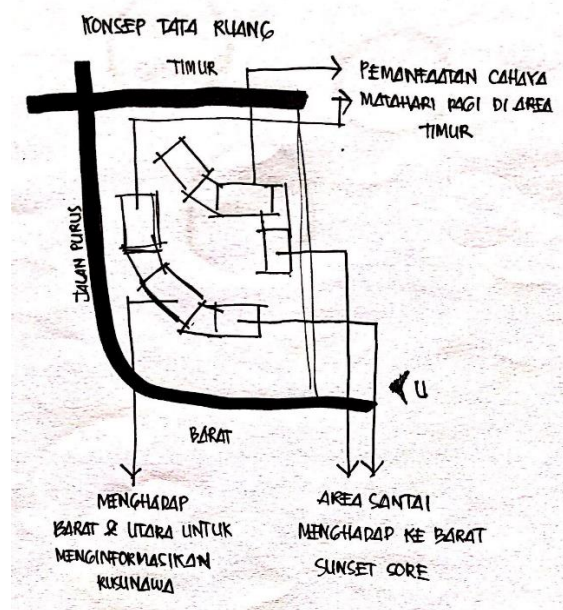 KONSEP TATA RUANG
TIMUR
PEMANFAATAN CAHAYA
MATAHARI PAGI DI AREA
TIMUR
JALAN PURUS
U
BARAT
MENGHADAP
BARAT & UTARA UNTUK
MENGINFORMASIKAN
RUSUNAWA
AREA SANTAI
MENGHADAP KE BARAT
SUNSET SORE